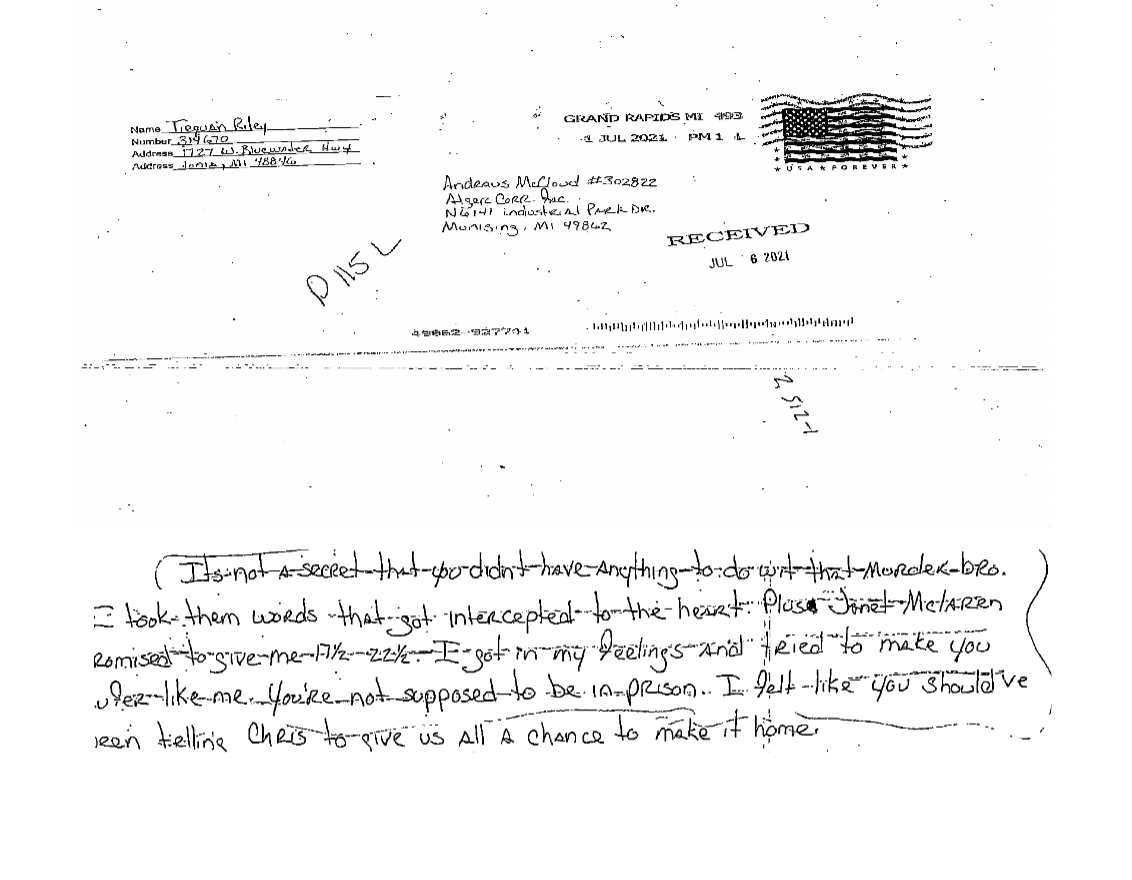 GRAND RAPIDS MI 493
1 JUL 2021 PM 1 L
Name Tiequan Riley
Number 314670
Address 1727 W. Bluewater Hwy
Address Ionia, MI 48846
USA FOREVER
Andraus McCloud #302822
Alger Corr. Fac.
N6141 industrial Park DR.
Munising, MI 49862
RECEIVED
JUL 6 2021
D 115 L
49862-927741
Its not a secret that you didn't have anything to do wit that Murder bro.
I took them words that got intercepted to the heart. Plus Jonet McLaren
romised to give me 17½-22½. I got in my feelings and tried to make you
uffer like me. You're not supposed to be in prison. I felt like you should've
een telling Chris to give us all a chance to make it home.